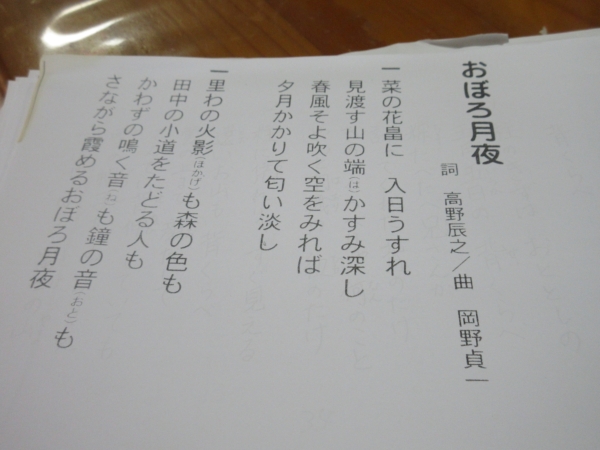 おぼろ月夜
詞 高野辰之／曲 岡野貞一
一菜の花畠に 入日うすれ
見渡す山の端（は）かすみ深し
春風そよ吹く空をみれば
夕月かかりて匂い淡し
一里わの火影（ほかげ）も森の色も
田中の小道をたどる人も
かわずの鳴く音（ね）も鐘の音（おと）も
さながら霞めるおぼろ月夜